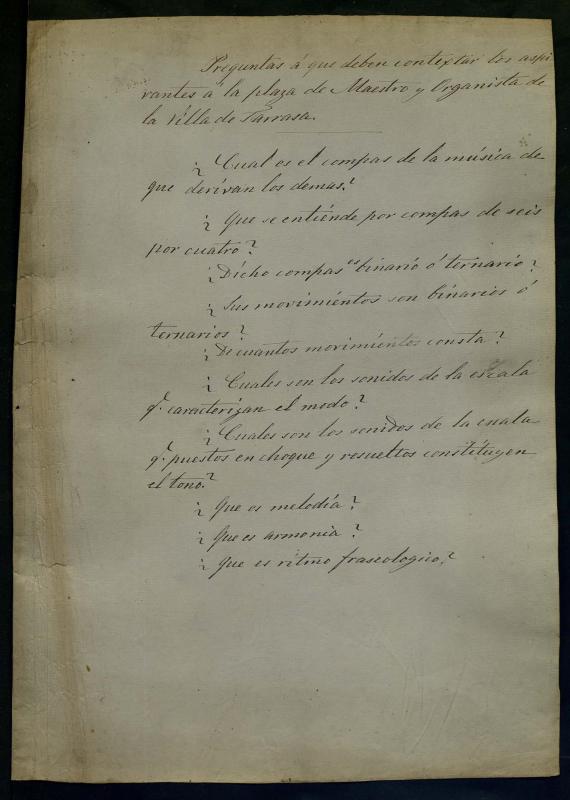 Preguntas á que deben contextar los aspi
rantes á la plaza de Maestro y Organista de
la Villa de Tarrasa.
¿ Cual es el compas de la música de
que derivan los demas?
¿ Que se entiénde por compas de seis
por cuatro?
¿Dicho compas es binario ó ternario?
¿ Sus movimientos son binarios ó
ternarios?
¿De cuantos movimientos consta?
¿ Cuales son los sonidos de la escala
q.e caracterizan el modo?
¿Cuales son los sonidos de la escala
q.e puestos en choque y resueltos constituyen
el tono?
¿ Que es melodía?
¿ Que es armonia?
¿ Que es ritmo fraseologico?